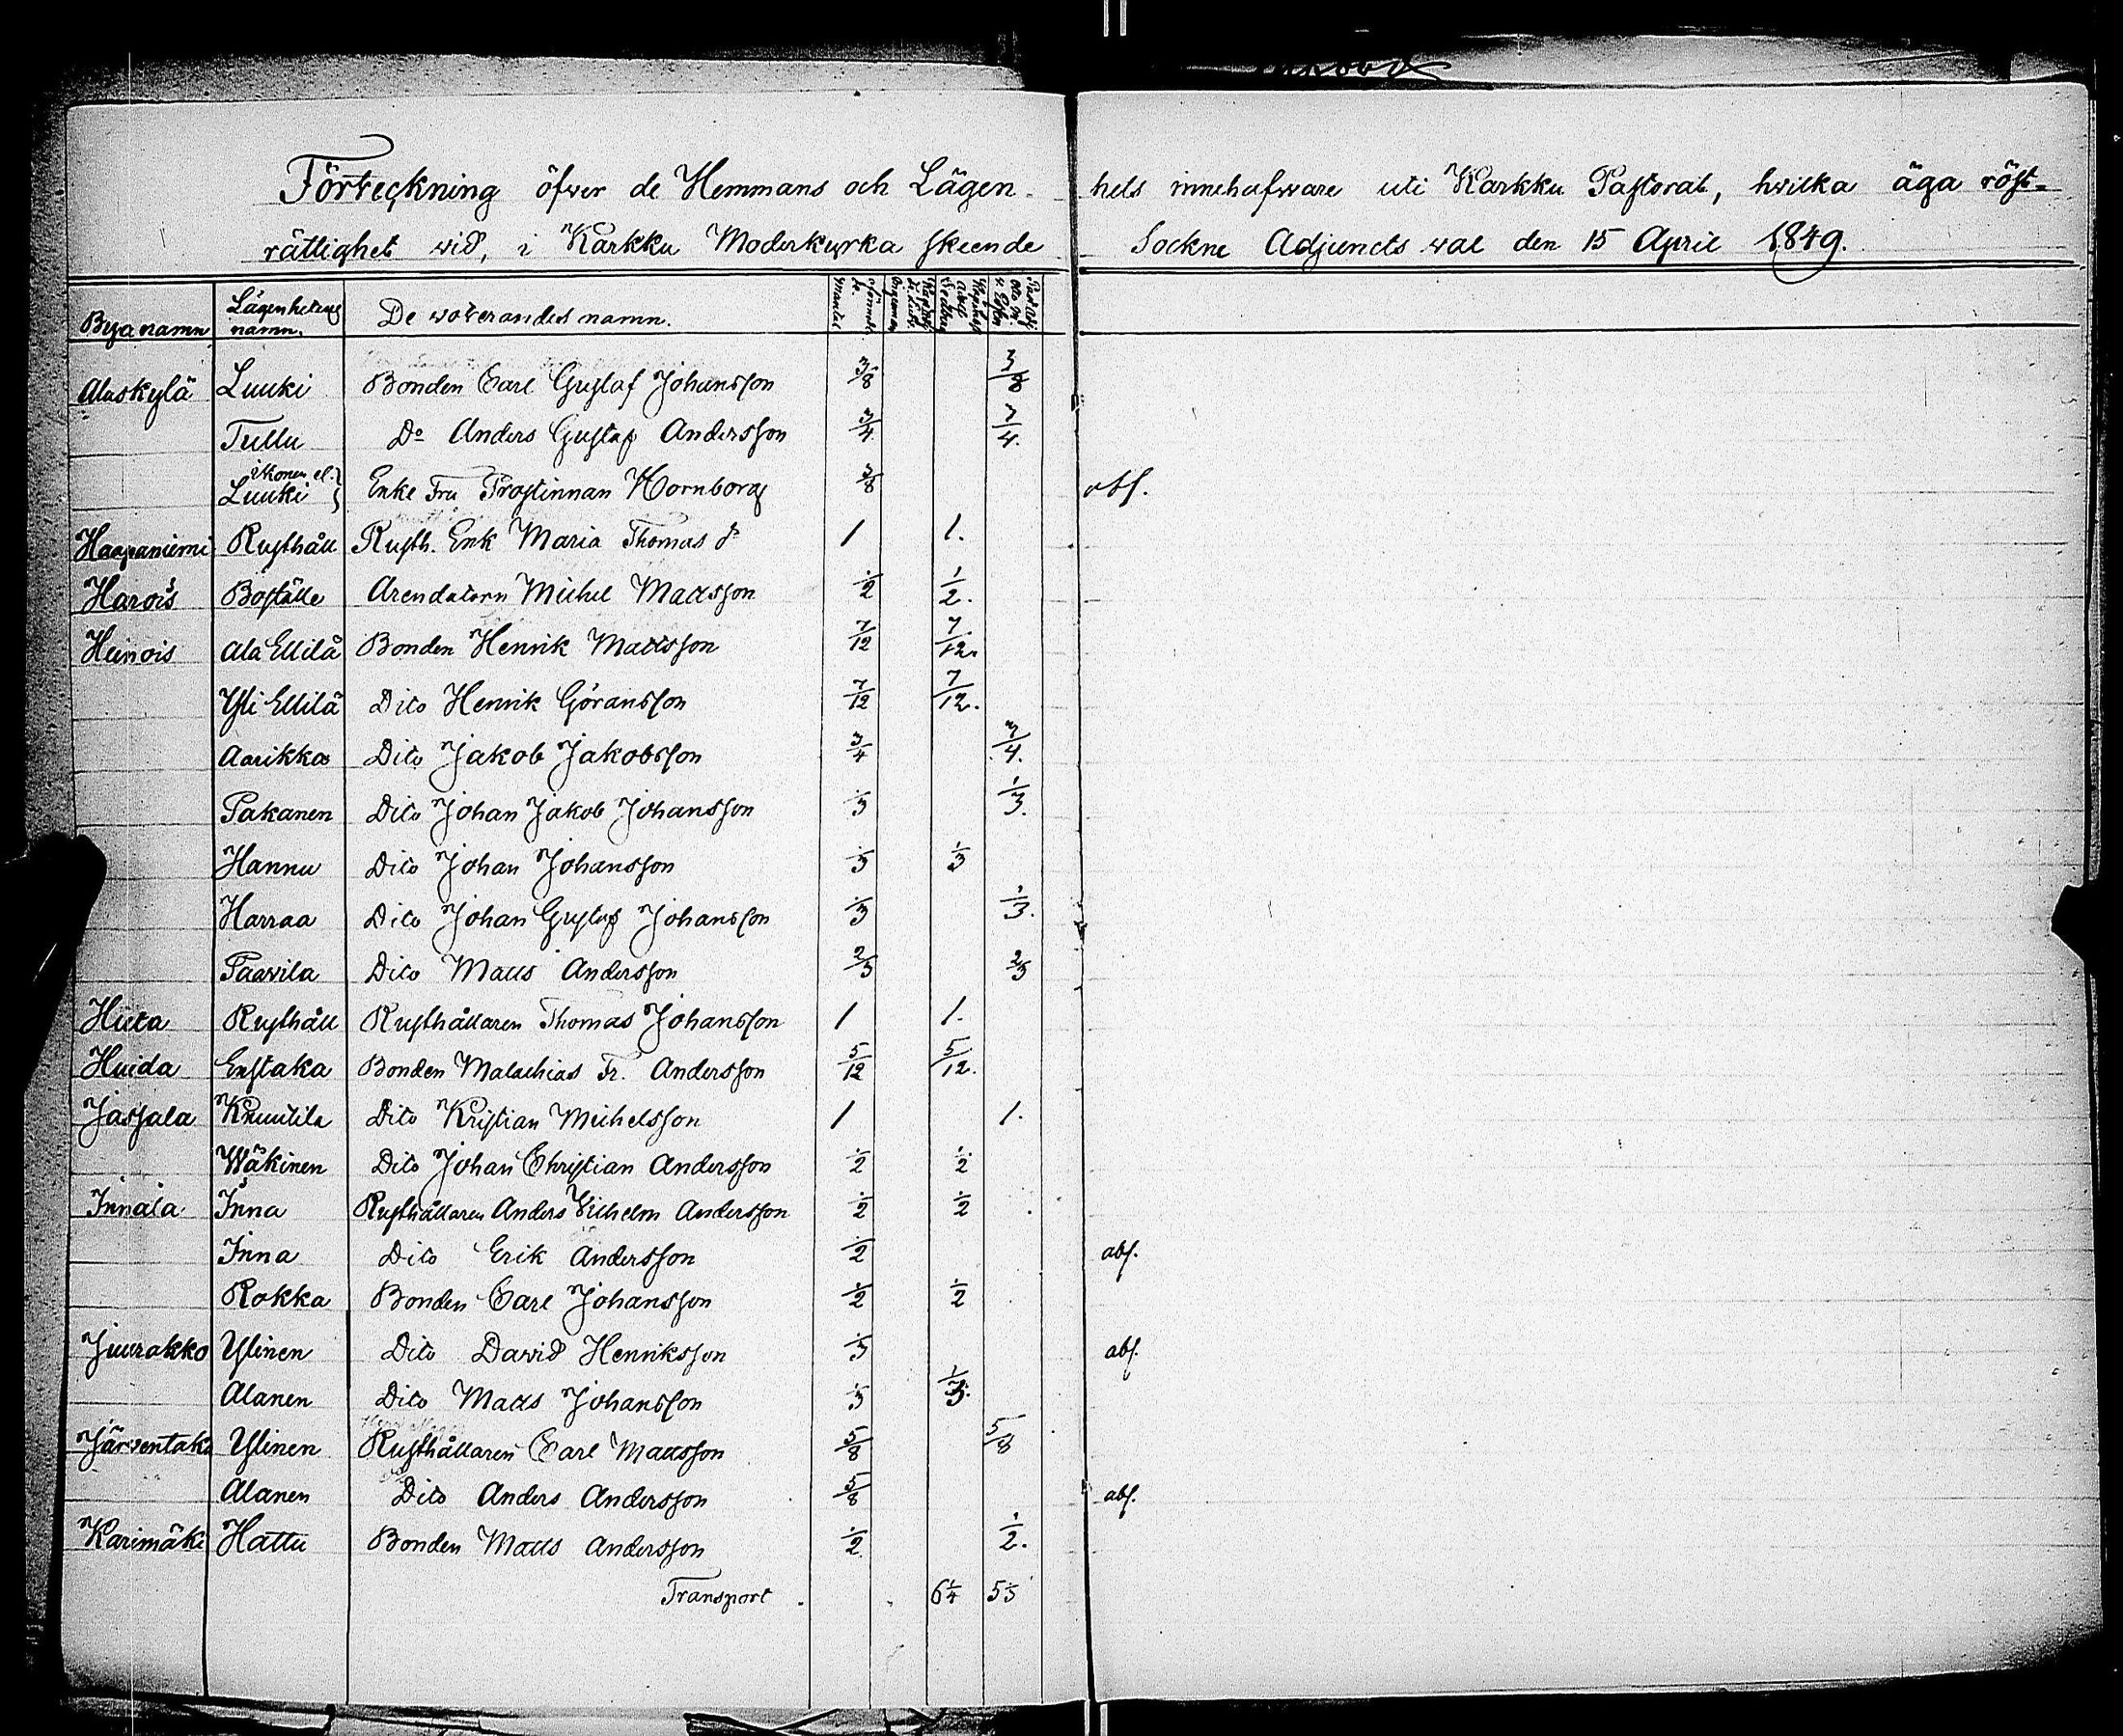 Förteckning öfwer de Hemmans och Lägen- hets innehafware uti Karkku Pastorat, hwilka äga röst-
rättighet wid, i Karkku Moderkyrka skeende Sockne Adjuncts wal den 15 April 1849.
Byanamn Lägenhetens namn. De woterandes namn. Mantal
Alaskylä Luuki Bonden Carl Gustaf Johansson 3/8 3/8
Tullu Do Anders Gustaf Andersson 3/4 3/4.
Luuki Enke Fru Prostinnan Hornborg 3/8 abs.
Haapaniemi Rusthåll Rusth. Enk Maria Thomas dr 1 1.
Harois Boställe Arendatorn Michel Mattsson 1/2 1/2.
Heinois Ala Ellilä Bonden Henrik Mattsson 7/12 7/12.
Yli Ellilä Dito Henrik Göransson 7/12 7/12.
Aarikka Dito Jakob Jakobsson 3/4 3/4.
Pakanen Dito Johan Jakob Johansson 1/3 1/3.
Hannu Dito Johan Johansson 1/3 1/3
Harraa Dito Johan Gustaf Johansson 1/3 1/3.
Paavila Dito Matts Andersson 2/3 2/3
Hieta Rusthåll Rusthållaren Thomas Johansson 1 1.
Huida Enstaka Bonden Malachias Fr. Andersson 5/12 5/12.
Jassala Knuutila Dito Kristian Michelsson 1 1.
Wäkinen Dito Johan Christian Andersson 1/2 1/2
Innala Inna Rusthållaren Anders Vilhelm Andersson 1/2 1/2
Inna Dito Erik Andersson 1/2 abs.
Rokka Bonden Carl Johansson 1/2 1/2
Juurakko Ylinen Dito David Henriksson 1/3 abs.
Alanen Dito Matts Johansson 1/3 1/3.
Järventaka Ylinen Rusthållaren Carl Mattsson 5/8 5/8
Alanen Dito Anders Andersson 5/8 abs.
Karimäki Hattu Bonden Matts Andersson 1/2 1/2.
Transport 6 1/4 5 1/3